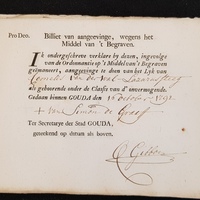 Pro Deo. Billiet van aangevinge, wegens het
Middel van 't Begraven.
Ik ondergeschreve verklare by dezen, ingevolge
van de Ordonnantie op 't Middel van 't Begraven
geëmaneert, aangevinge te doen van het Lyk van
Cornelis van der
als gehoorende onder de Classe van d' onvermogende.
Gedaan binnen GOUDA den 16 october 1791
+ van Simon de Graaf
Ter Secretarye der Stad GOUDA,
geteekend op datum als boven.